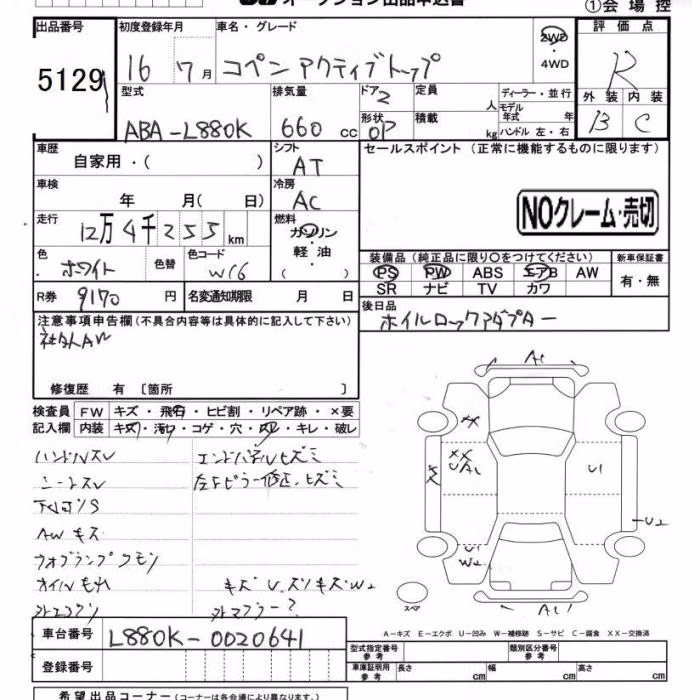 オークション出品申込書
①会場控
出品番号
5129
初度登録年月
16年 7月
車名・グレード
コペン アクティブトップ
2WD
・
4WD
評価点
R
外装 内装
B C
型式
ABA-L880K
排気量
660 cc
ドア
2
形状
OP
定員
人
積載
kg
ディーラー・並行
モデル年式 年
ハンドル 左・右
車歴
自家用・( )
シフト
AT
車検
年 月( 日)
冷房
AC
走行
12万4千255km
燃料
ガソリン
軽油
( )
色
ホワイト
色替
色コード
W16
R券
9170円
名変通知期限 月 日
セールスポイント (正常に機能するものに限ります)
NOクレーム・売切
装備品 (純正品に限り○をつけてください)
PS PW ABS エアB AW
SR ナビ TV カワ
新車保証書
有・無
後日品
ホイルロックアダプター
注意事項申告欄 (不具合内容等は具体的に記入して下さい)
社外AW
修復歴 有 〔箇所 〕
検査員記入欄
FW キズ・飛石・ヒビ割・リペア跡・×要
内装 キズ・汚れ・コゲ・穴・スレ・キレ・破レ
ハンドルスレ
シートスレ
下回りS
AWキズ
フォグランプクモリ
オイルモれ
エンドパネルヒズミ
左Fピラー修正、ヒズミ
キズ U.スリキズW2
外マフラー?
A1
XX
XX
UA1
XX
U1
U2
U1
W2
A1
スペア
A-キズ E-エクボ U-凹み W-補修跡 S-サビ C-腐食 XX-交換済
車台番号
L880K-0020641
登録番号
型式指定番号
参考
類別区分番号
参考
車庫証明用
参考
長さ cm
幅 cm
高さ cm
希望出品コーナー (コーナーは各会場により異なります。)